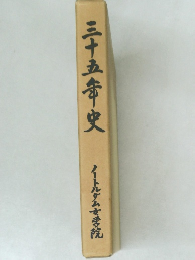 三十五年史
ノートルダム女学院